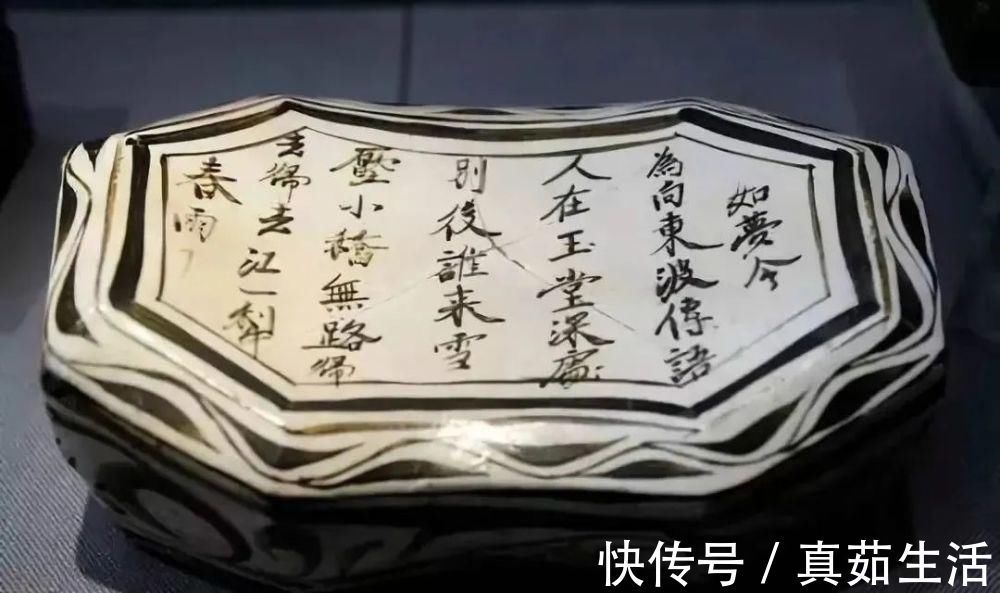 如夢令
為向東波傳語
人在玉堂深處
別後誰来雪
壓小橋無路歸
去歸去江一犁
春雨
快传号 / 真茹生活